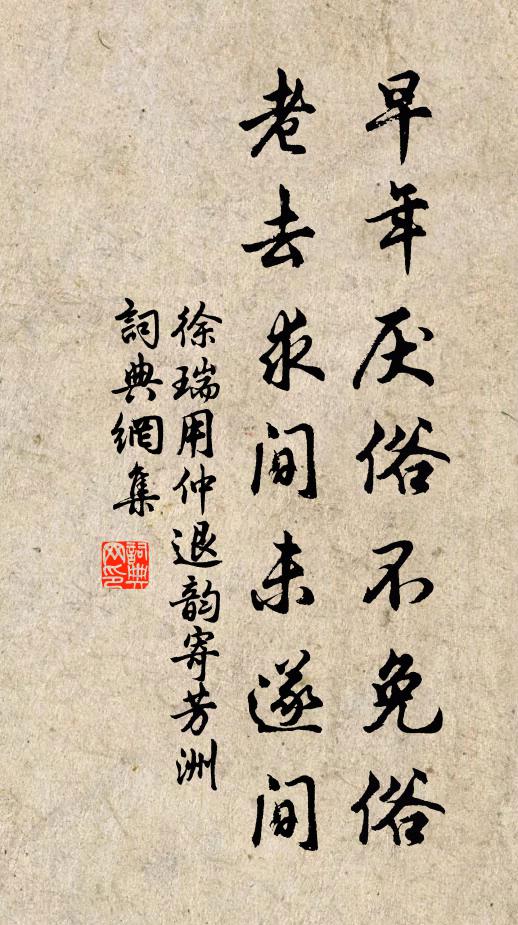 早年厌俗不免俗
老去求间未遂间
徐瑞用仲退韵寄芳洲
詞典網集
詞典網印